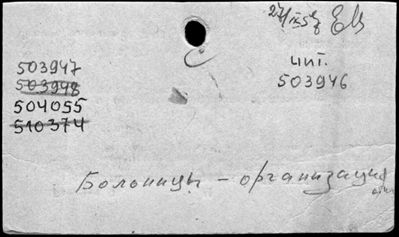 503947
503948
504055
510374
инт.
503946
Больницы - организация